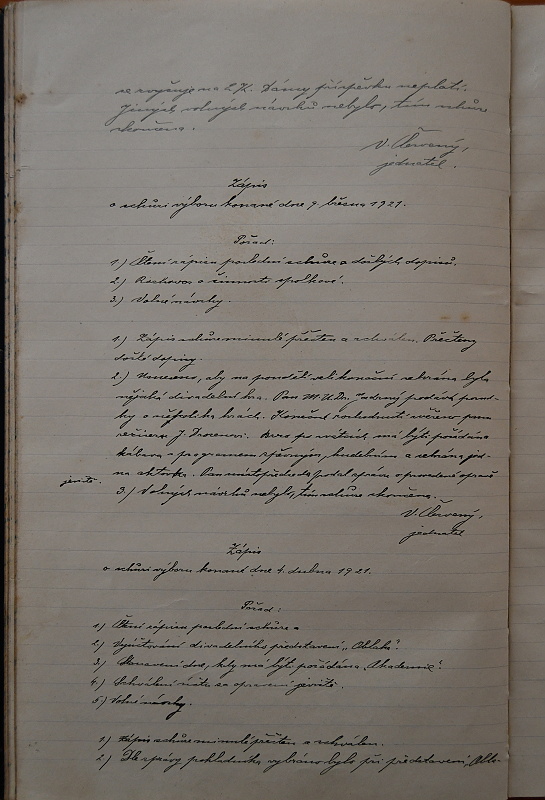 se zvyšuje na 2 K. Dámy příspěvku neplatí.
Jiných volných návrhů nebylo, tím schůze
skončena.
V. Červený,
jednatel.
Zápis
o schůzi výboru konané dne 9. března 1921.
Pořad:
1.) Čtení zápisu poslední schůze a došlých dopisů.
2.) Rozhovor o činnosti spolkové.
3.) Volné návrhy.
1.) Zápis schůze minulé přečten a schválen. Přečteny
došlé dopisy.
2.) Usneseno, aby na pondělí velikonoční sehrána byla
nějaká divadelní hra. Pan M.U.Dr. podává
o několika hrách. Konečné rozhodnutí svěřeno panu
režiséru J. Brzo po svátcích má býti pořádána
s programem pěveckým, hudebním a sehrána jed-
na aktovka. Pan místopředseda podal zprávu o provedené opravě
jeviště.
3.) Volných návrhů nebylo, tím schůze skončena.
V. Červený,
jednatel
Zápis
o schůzi výboru konané dne 4. dubna 1921.
Pořad:
1.) Čtení zápisu poslední schůze
2.) Vyúčtování divadelního představení "Oblaka".
3.) Stanovení dne, kdy má býti pořádána "Akademie".
4.) Schválení účtu za opravení jeviště.
5.) Volné návrhy.
1.) Zápis schůze minulé přečten a schválen.
2.) Dle zprávy pokladníka vybráno bylo při představení "Obla-